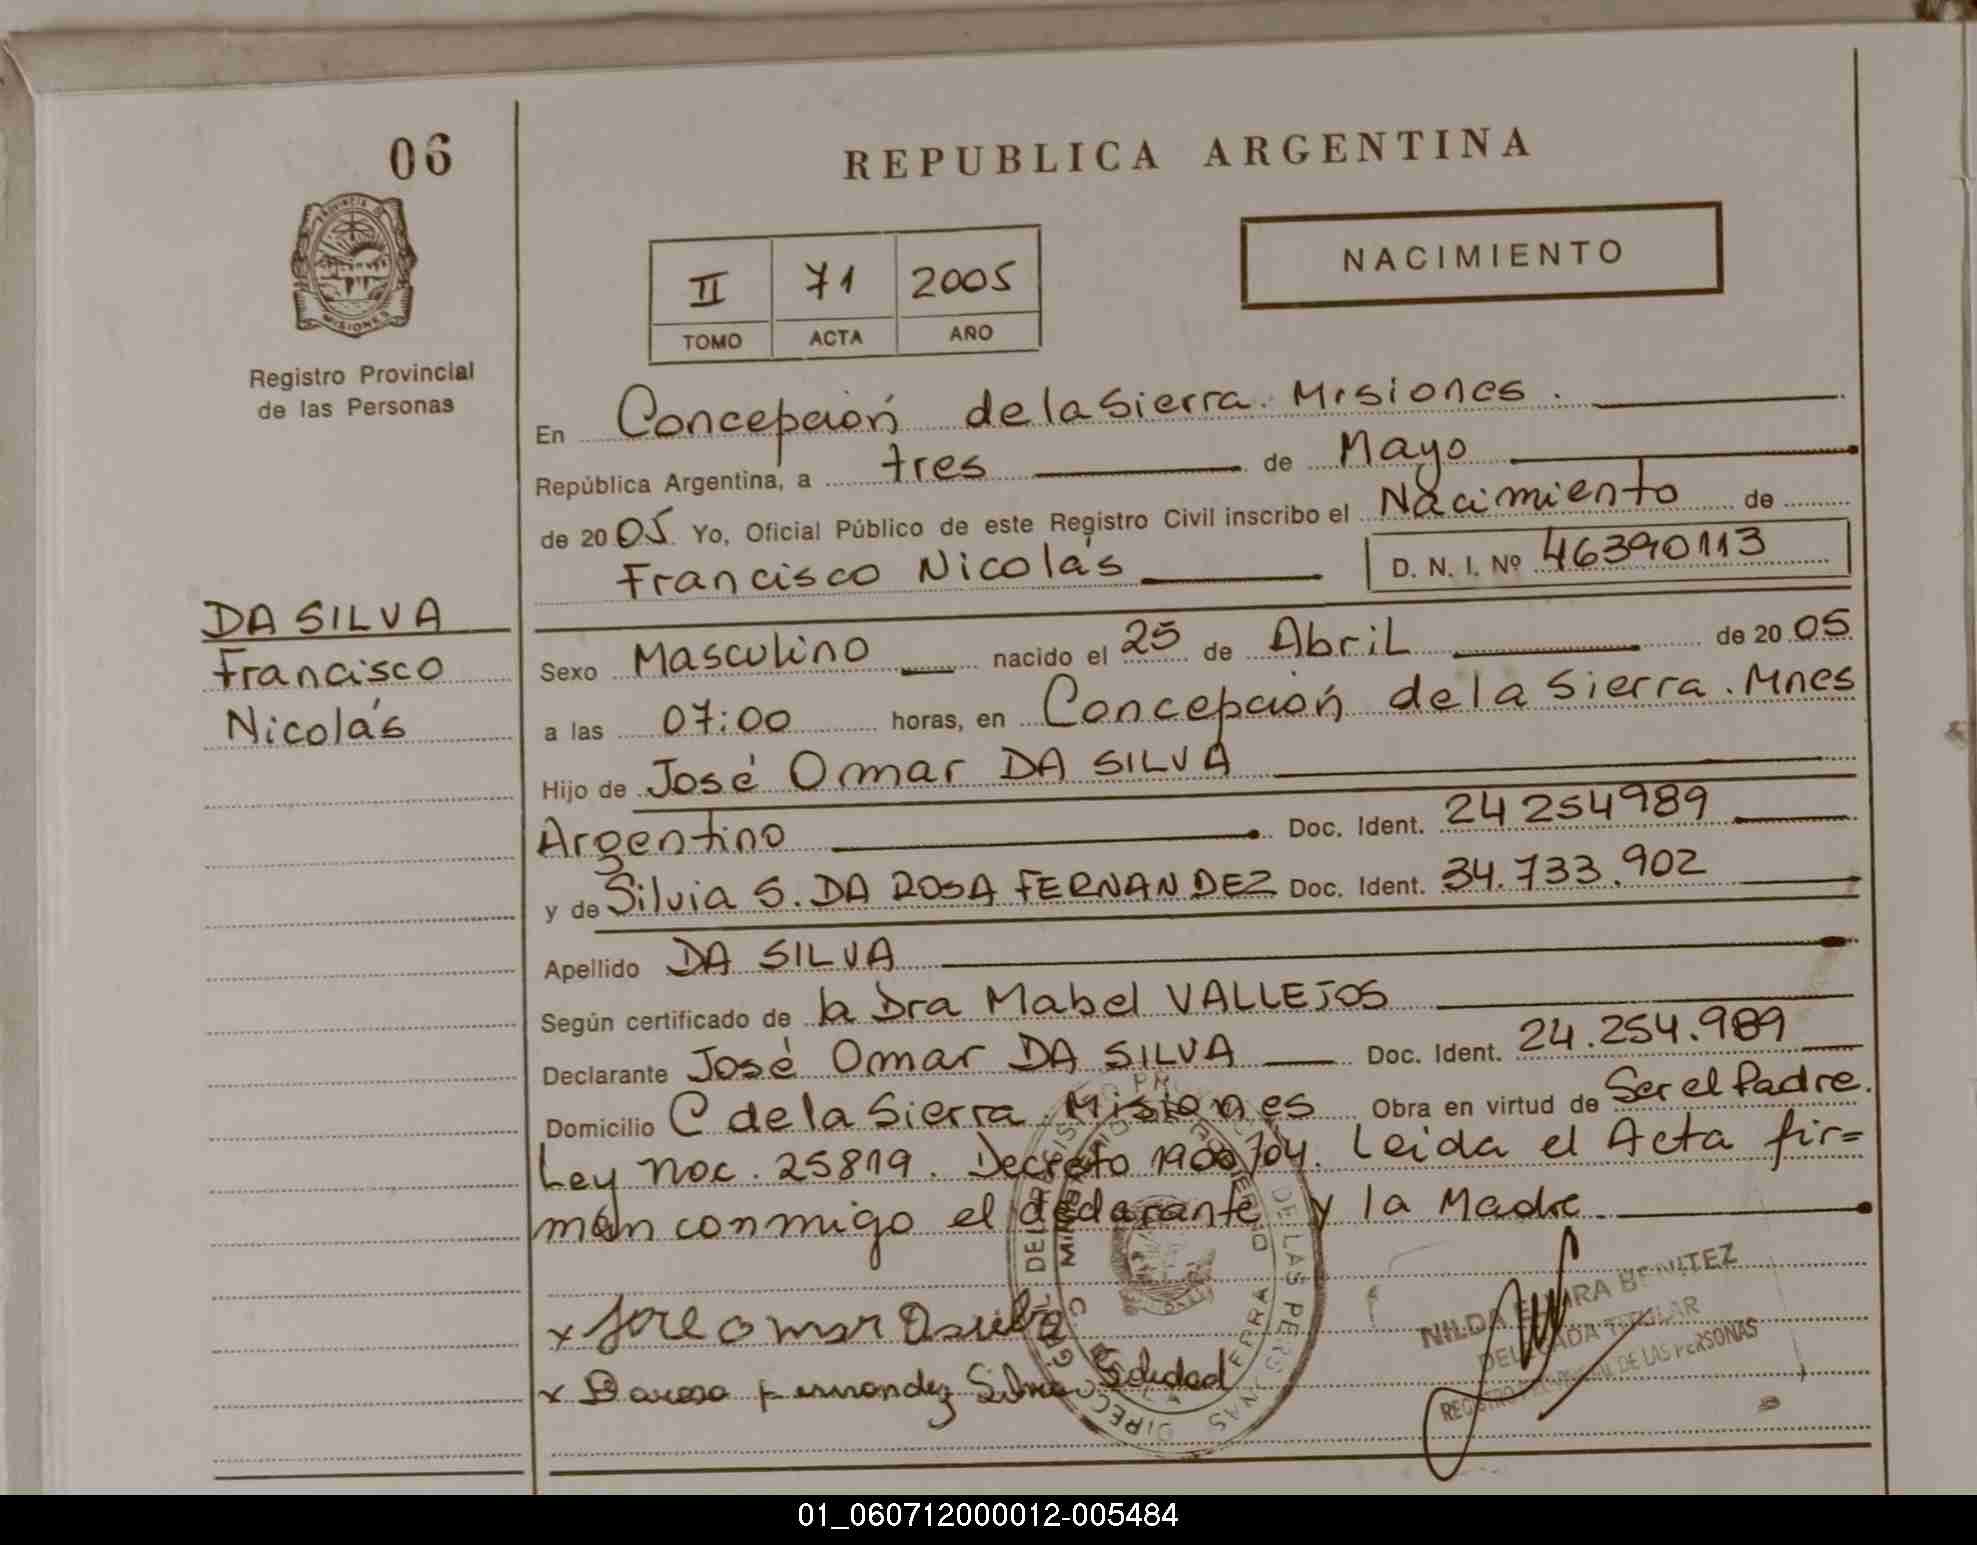 06
REPUBLICA ARGENTINA
PROVINCIA DE
MISIONES
Registro Provincial
de las Personas
II 71 2005
TOMO ACTA AÑO
NACIMIENTO
En Concepción de la Sierra. Misiones.
República Argentina, a tres de Mayo
de 2005. Yo, Oficial Público de este Registro Civil inscribo el Nacimiento de
Francisco Nicolás D. N. I. Nº 46390113
DA SILVA
Francisco
Nicolás
Sexo Masculino nacido el 25 de Abril de 2005
a las 07:00 horas, en Concepción de la Sierra. Mnes
Hijo de José Omar DA SILVA
Argentino Doc. Ident. 24 254989
y de Silvia S. DA ROSA FERNANDEZ Doc. Ident. 34.733.902
Apellido DA SILVA
Según certificado de la Dra Mabel VALLEJOS
Declarante José Omar DA SILVA Doc. Ident. 24.254.989
Domicilio C de la Sierra. Misiones Obra en virtud de Ser el Padre.
Ley Nac. 25819. Decreto 1900/04. Leida el Acta fir=
man conmigo el declarante y la Madre
x José Omar Dasilva
x Darosa Fernandez Silvia Soledad
NILDA BENITEZ
DELEGADA TITULAR
REGISTRO DE LAS PERSONAS
01_060712000012-005484